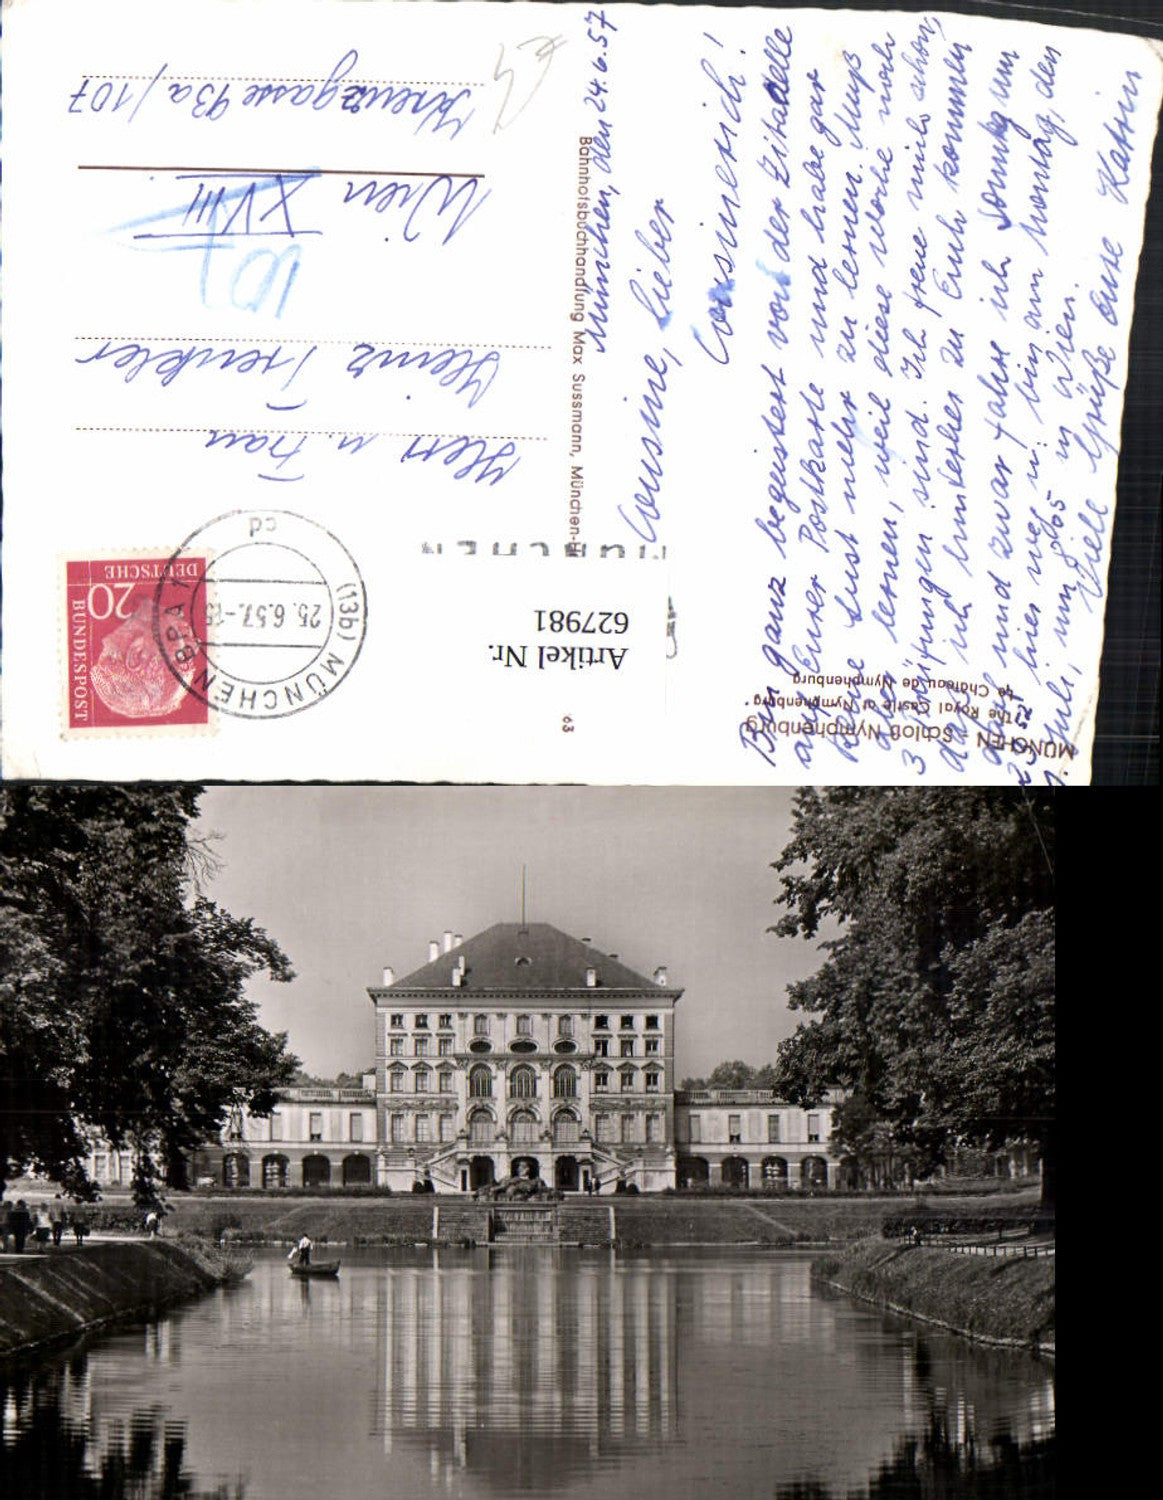 München, den 24.6.57
Cousine, lieber
Cousinerich!
Bin ganz begeistert von der Zitadelle
auf Eurer Postkarte und habe gar
keine Lust mehr zu lernen. Muß
aber lernen, weil diese Woche noch
3 Prüfungen sind. Ich freue mich schon,
daß ich hinterher zu Euch kommen
darf und zwar fahre ich Sonntag um
hier weg u. bin am Montag, den
1. Juli, um in Wien.
Viele Grüße Eure Katrin
MÜNCHEN Schloß Nymphenburg
The Royal Castle of Nymphenburg
Le Château de Nymphenburg
Bahnhofsbuchhandlung Max Sussmann, München-H
63
Artikel Nr.
627981
MÜNCHEN
(13b) MÜNCHEN BPA 1
25.6.57.-18
cd
DEUTSCHE
BUNDESPOST
20
Herrn u. Frau
Heinz Trenkler
Wien
XVIII
107
Kreuzgasse 93a/107